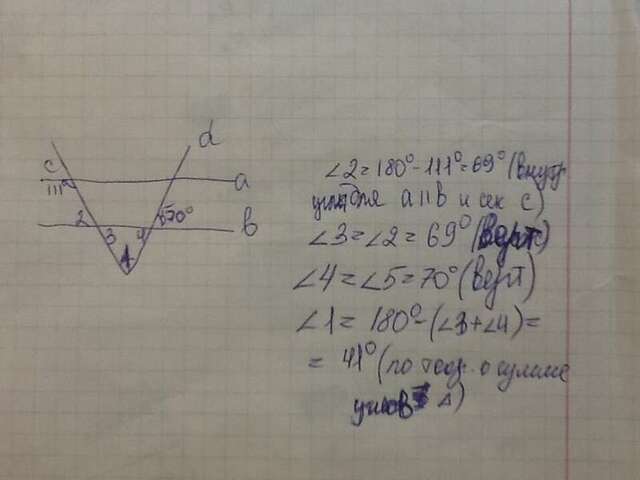 d
c
a
111°
2
5=70°
b
3
4
1
∠2=180°-111°=69° (внутр
углы для a॥b и сек c)
∠3=∠2=69° (верт)
∠4=∠5=70° (верт)
∠1= 180°-(∠3+∠4)=
= 41° (по теор. о сумме
углов Δ)